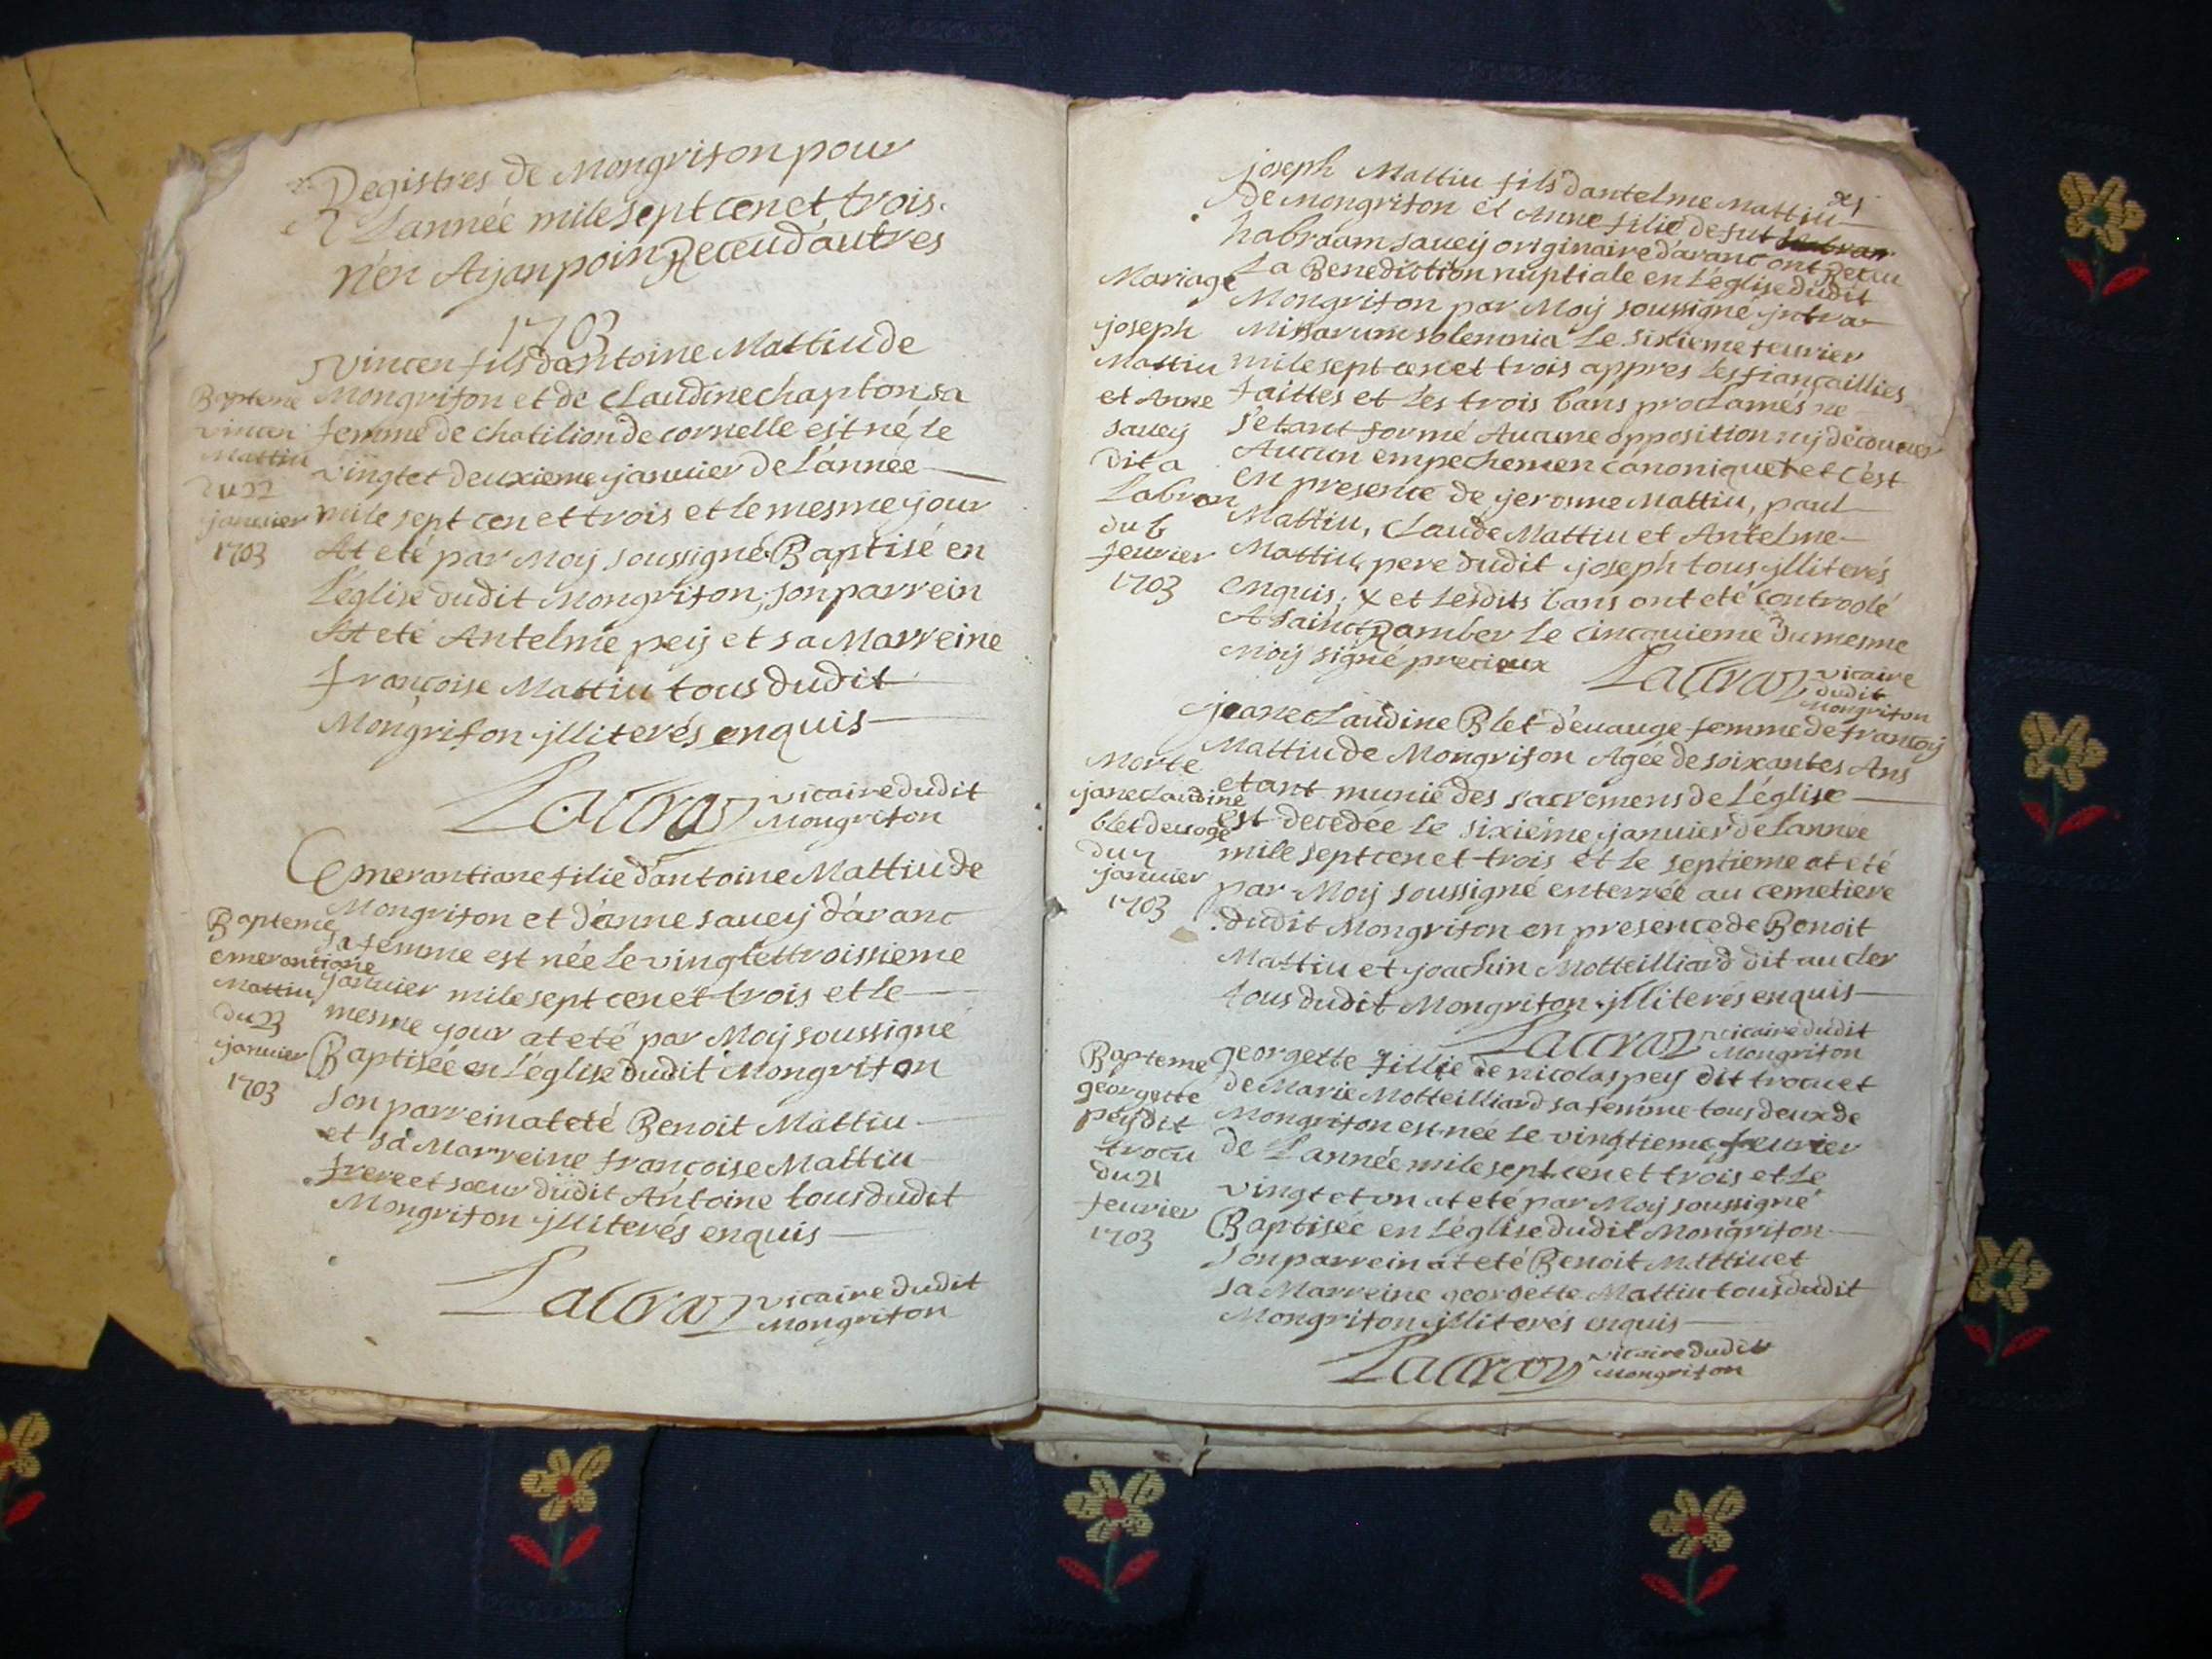 Registres de Mongrifon pour
L'année mile sept cen et trois.
n'en Aijan poin Receu d'autres
1703
vincen fils d'antoine Mattiu de
Mongrifon et de Claudine chapton sa
femme de chatilion de cornelle est né le
vingt et deuxieme januier de L'année
mile sept cen et trois et le mesme jour
At eté par Moij soussigné Baptisé en
L'église dudit Mongrifon, son parrein
At eté Antelme peij et sa Marreine
françoise Mattiu tous dudit
Mongrifon jlliterés enquis
Bapteme
vincen
Mattiu
du 22
januier
1703
Lacroz vicaire dudit
Mongrifon
Emerantiane filie d'antoine Mattiu de
Mongrifon et d'anne saueij d'aranc
sa femme est née le vingt et troissieme
januier mile sept cen et trois et le
mesme jour at eté par Moij soussigné
Baptisée en L'église dudit Mongrifon
son parrein at eté Benoit Mattiu
et sa Marreine françoise Mattiu
frere et sœur dudit Antoine tous dudit
Mongrifon jlliterés enquis
Bapteme
emerantiane
Mattiu
du 23
januier
1703
Lacroz vicaire dudit
Mongrifon
joseph Mattiu fils d'antelme Mattiu
de Mongrifon et Anne filie de fut
habraam saueij originaire d'aranc ont Receu
La Benediction nuptiale en L'église dudit
Mongrifon par Moij soussigné jntra
Missarum solemnia Le sixieme feurier
mile sept cen et trois appres les fiançaillies
faittes et les trois bans proclamés ne
s'etant formé Aucune opposition nij décuouer
Aucun empechemen canonique et c'est
en presence de jerosme Mattiu, paul
Mattiu, Claude Mattiu et Antelme
Mattiu pere dudit joseph tous jlliterés
enquis, x et Lesdits bans ont eté controolé
A sainct Ramber le cinquieme du mesme
Moij signé precieux
Mariage
joseph
Mattiu
et Anne
saueij
dit a
Labran
du 6
feurier
1703
Lacroz vicaire
dudit
Mongrifon
jeane Claudine Blet d'euauge femme de françoij
Mattiu de Mongrifon Agée de soixantes Ans
etant munie des sacremens de L'église
est decedée le sixiéme januier de L'année
mile sept cen et trois et le septieme at eté
par Moij soussigné enterrée au cemetiere
dudit Mongrifon en presence de Benoit
Mattiu et joachin Motteilliard dit au cler
tous dudit Mongrifon jlliterés enquis
Morte
jane claudine
blet deuoge
du 7
januier
1703
Lacroz vicaire dudit
Mongrifon
georgette fillie de nicolas peij dit trocu et
de Marie Motteilliard sa femme tous deux de
Mongrifon est née le vingtieme feurier
de L'année mile sept cen et trois et le
vingt et un at eté par Moij soussigné
Baptisée en L'église dudit Mongrifon
son parrein at eté Benoit Mattiu et
sa Marreine georgette Mattiu tous dudit
Mongrifon jlliterés enquis
Bapteme
georgette
peij dit
trocu
du 21
feurier
1703
Lacroz vicaire dudit
Mongrifon